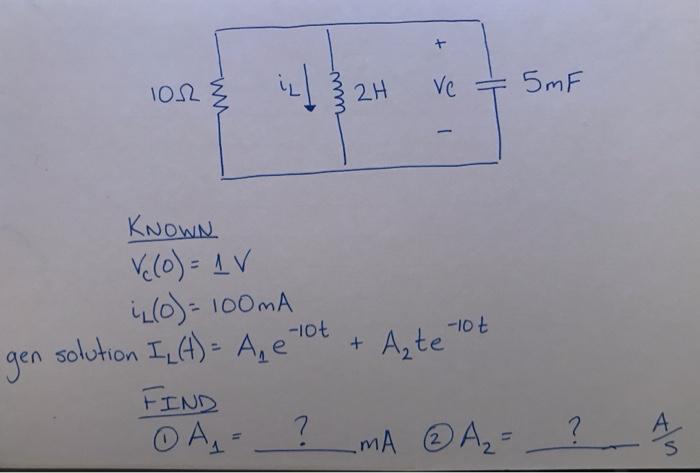 +
10Ω iL 2H Vc 5mF
−
KNOWN
Vc(0) = 1V
iL(0) = 100mA
gen solution IL(t) = A1e^-10t + A2te^-10t
FIND
① A1 = ? mA ② A2 = ? A/S